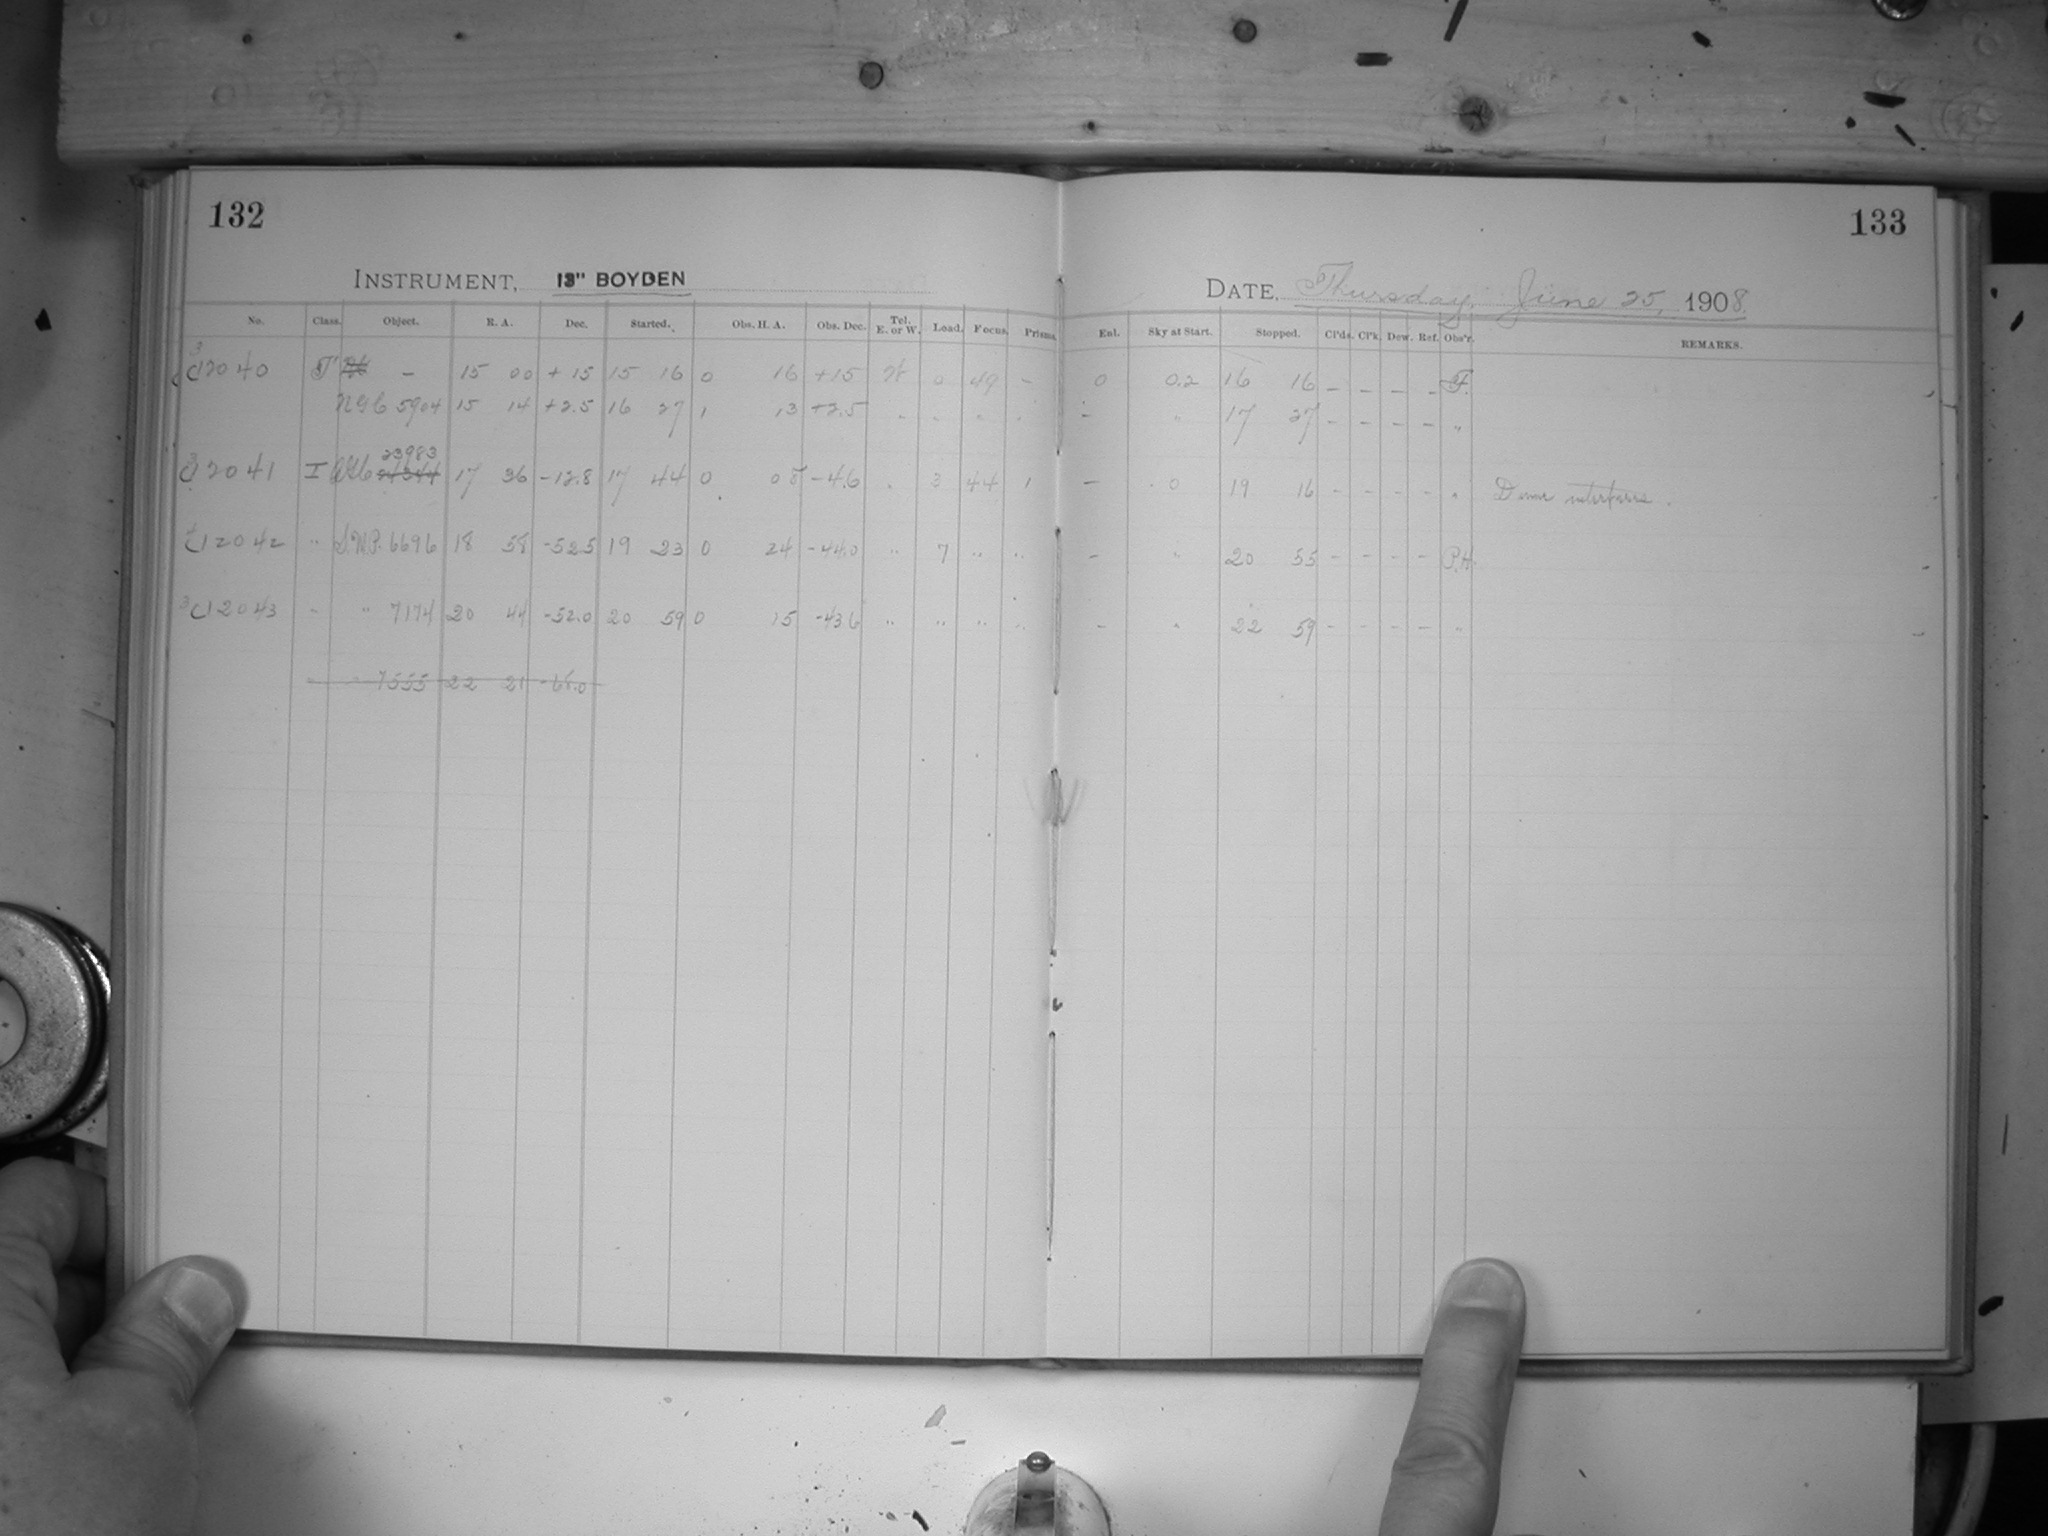 132
133
INSTRUMENT, 13" BOYDEN
DATE, Thursday, June 25, 1908
No. Class. Object. R. A. Dec. Started. Obs. H. A. Obs. Dec. Tel. E. or W. Load. Focus. Prisms. Enl. Sky at Start. Stopped. Cl'ds. Cl'k. Dew. Ref. Obs'r. REMARKS.
3
C12040 T - 15 00 +15 15 16 0 16 +15 W 0 49 - 0 0.2 16 16 - - - - F.
NGC 5904 15 14 +2.5 16 27 1 13 +2.5 " " " " - " 17 27 - - - - "
23983
C12041 I AGC 24344 17 36 -12.8 17 44 0 08 -4.6 " 3 44 1 - 0 19 16 - - - - " Dome interferes.
C12042 " S.M.P. 6696 18 58 -52.5 19 23 0 24 -44.0 " 7 " " - " 20 55 - - - - P.H.
3 C12043 " " 7174 20 44 -52.0 20 59 0 15 -43.6 " " " " - " 22 59 - - - - "
" 7555 22 21